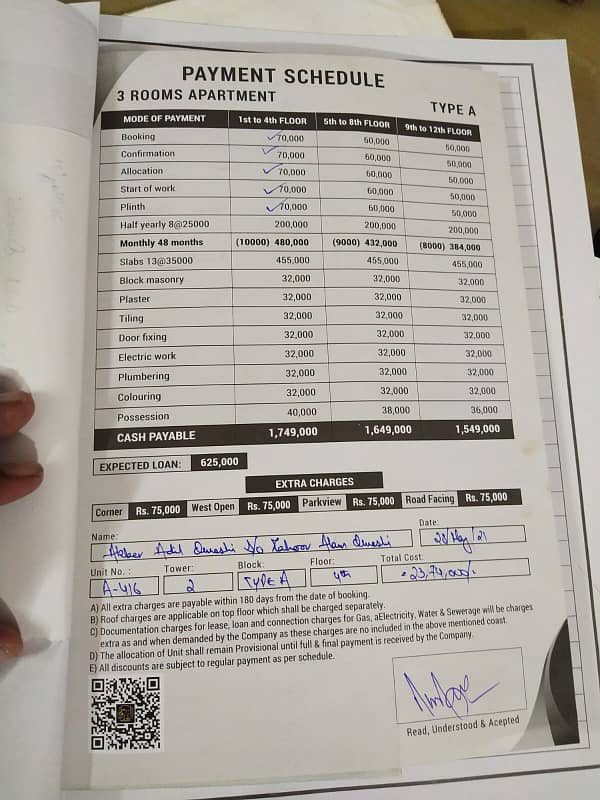 PAYMENT SCHEDULE
3 ROOMS APARTMENT TYPE A
MODE OF PAYMENT 1st to 4th FLOOR 5th to 8th FLOOR 9th to 12th FLOOR
Booking 70,000 60,000 50,000
Confirmation 70,000 60,000 50,000
Allocation 70,000 60,000 50,000
Start of work 70,000 60,000 50,000
Plinth 70,000 60,000 50,000
Half yearly 8@25000 200,000 200,000 200,000
Monthly 48 months (10000) 480,000 (9000) 432,000 (8000) 384,000
Slabs 13@35000 455,000 455,000 455,000
Block masonry 32,000 32,000 32,000
Plaster 32,000 32,000 32,000
Tiling 32,000 32,000 32,000
Door fixing 32,000 32,000 32,000
Electric work 32,000 32,000 32,000
Plumbering 32,000 32,000 32,000
Colouring 32,000 32,000 32,000
Possession 40,000 38,000 36,000
CASH PAYABLE 1,749,000 1,649,000 1,549,000
EXPECTED LOAN: 625,000
EXTRA CHARGES
Corner Rs. 75,000 West Open Rs. 75,000 Parkview Rs. 75,000 Road Facing Rs. 75,000
Name: Adil Qureshi S/o Zahoor Alam Qureshi Date: 28/May/21
Unit No. : A-416 Tower: 2 Block: TYPE A Floor: 4th Total Cost: 23,74,000/-
A) All extra charges are payable within 180 days from the date of booking.
B) Roof charges are applicable on top floor which shall be charged separately.
C) Documentation charges for lease, loan and connection charges for Gas, aElectricity, Water & Sewerage will be charges
extra as and when demanded by the Company as these charges are no included in the above mentioned coast.
D) The allocation of Unit shall remain Provisional until full & final payment is received by the Company.
E) All discounts are subject to regular payment as per schedule.
Read, Understood & Acepted